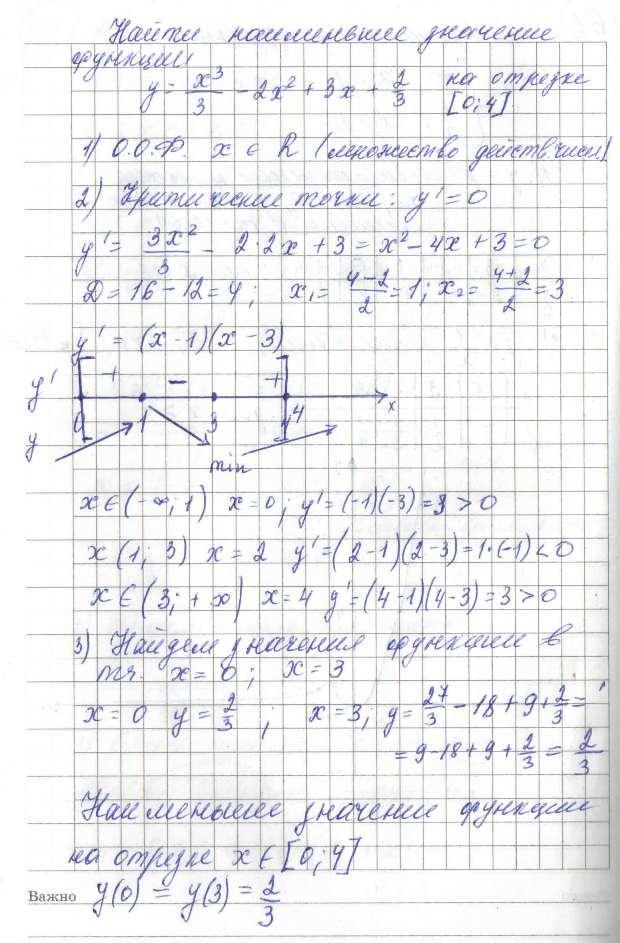 Найти наименьшее значение
функции
y = x³/3 - 2x² + 3x + 2/3 на отрезке
[0; 4]
1) О.О.Ф. x ∈ R (множество действ. чисел)
2) Критические точки: y' = 0
y' = 3x²/3 - 2·2x + 3 = x² - 4x + 3 = 0
D = 16 - 12 = 4; x₁ = (4-2)/2 = 1; x₂ = (4+2)/2 = 3
y' = (x - 1)(x - 3)
y' + - + x
0 1 3 4
y min
x ∈ (-∞; 1) x = 0; y' = (-1)(-3) = 3 > 0
x (1; 3) x = 2 y' = (2-1)(2-3) = 1·(-1) < 0
x ∈ (3; +∞) x = 4 y' = (4-1)(4-3) = 3 > 0
3) Найдем значения функции в
тч. x = 0; x = 3
x = 0 y = 2/3; x = 3; y = 27/3 - 18 + 9 + 2/3 =
= 9 - 18 + 9 + 2/3 = 2/3
Наименьшее значение функции
на отрезке x ∈ [0; 4]
Важно y(0) = y(3) = 2/3